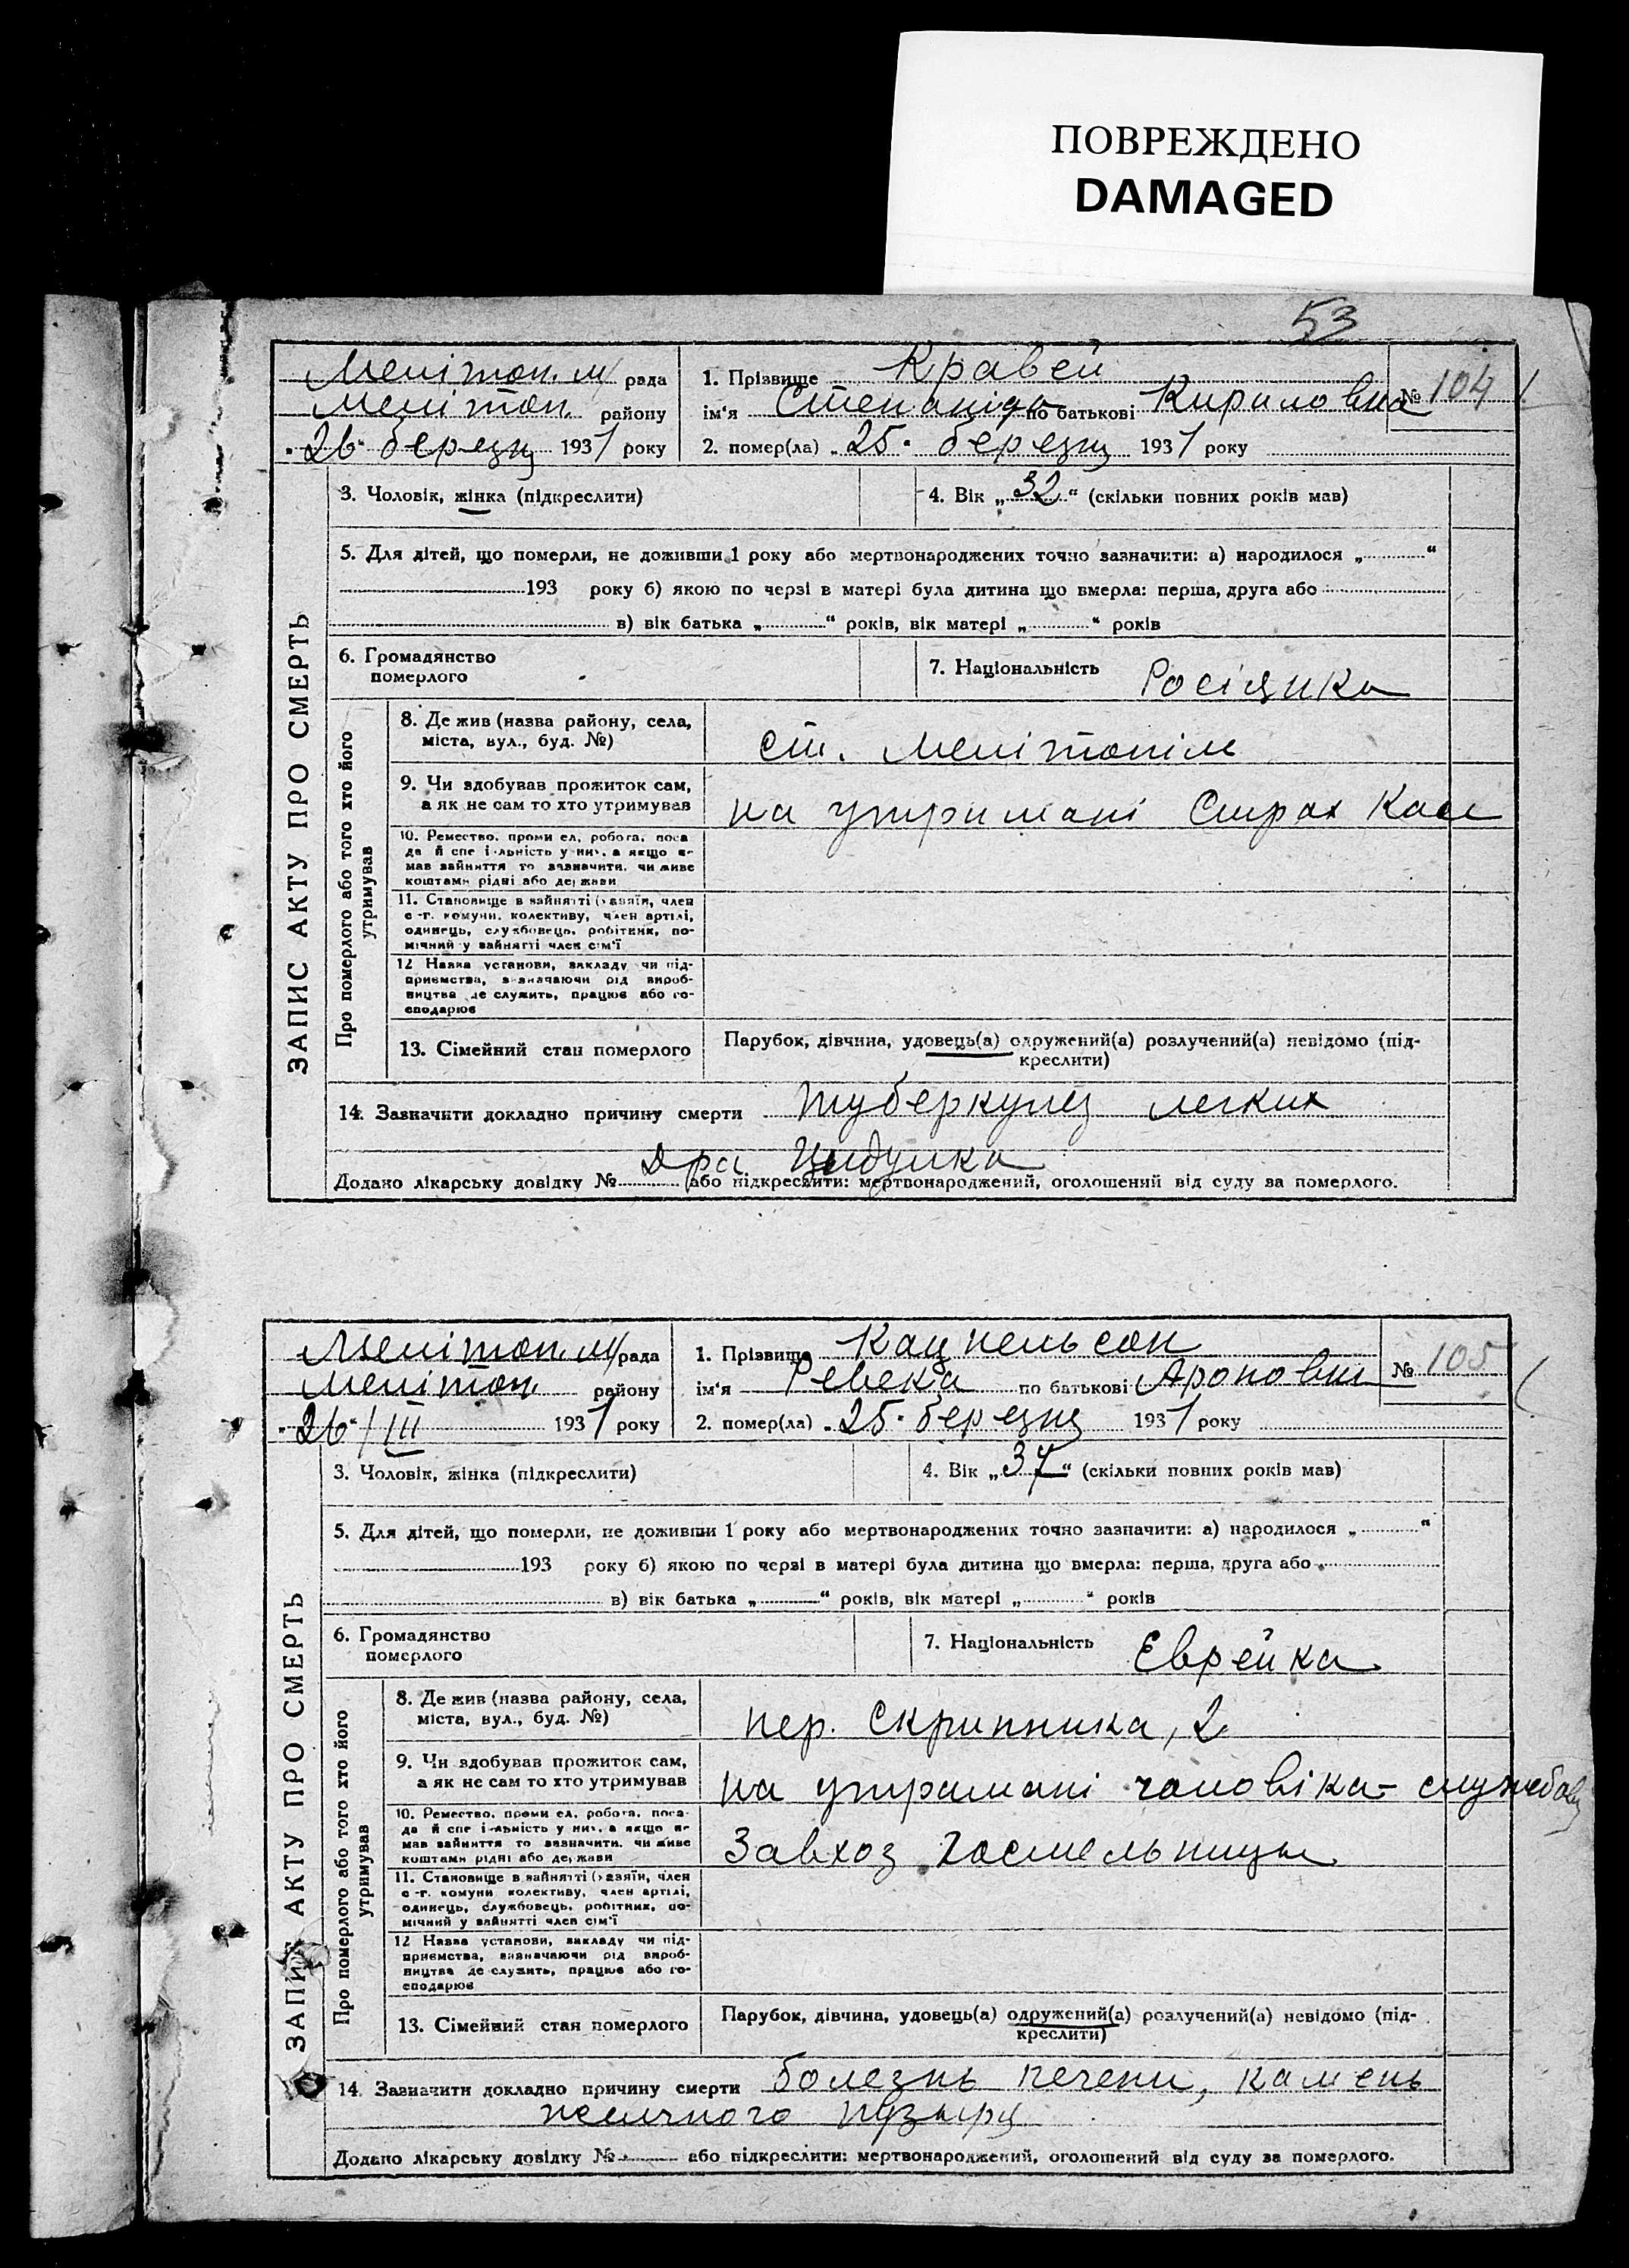 ПОВРЕЖДЕНО
DAMAGED
53
Мелітоп. м/ рада
Мелітоп. району
„26“ березня 1931 року
1. Прізвище Кравей
ім‘я Степаніда по батькові Кириловна
№ 104
2. помер(ла) „25“ березня 1931 року
ЗАПИС АКТУ ПРО СМЕРТЬ
3. Чоловік, жінка (підкреслити)
4. Вік „32“ (скільки повних років мав)
5. Для дітей, що померли, не доживши 1 року або мертвонароджених точно зазначити: а) народилося „ “
193 року б) якою по черзі в матері була дитина що вмерла: перша, друга або
в) вік батька „ “ років, вік матері „ “ років
6. Громадянство
померлого
7. Національність Росіянка
Про померлого або того хто його
утримував
8. Де жив (назва району, села,
міста, вул., буд. №)
ст. Мелітопіль
9. Чи здобував прожиток сам,
а як не сам то хто утримував
на утримані Страх Каси
10. Ремество, проми ел, робота, поса
да й спе і льність у них, а якщо не
мав зайняття то зазначити, чи живе
коштами рідні або держави
11. Становище в зайнятті (хазяїн, член
с-г. комуни, колективу, член артілі,
одинець, службовець, робітник, по-
мічний у зайнятті член сім'ї
12 Назва установи, закладу чи під-
приємства, зазначаючи рід вироб-
ництва де служить, працює або го-
сподарює
13. Сімейний стан померлого
Парубок, дівчина, удовець(а) одружений(а) розлучений(а) невідомо (під-
креслити)
14. Зазначити докладно причину смерти туберкульз легких
Дра
Додано лікарську довідку № або підкреслити: мертвонароджений, оголошений від суду за померлого.
Мелітоп. м/ рада
Мелітоп. району
„26“/III 1931 року
1. Прізвище Кацнельсон
ім‘я Ревека по батькові Ароновна
№ 105
2. помер(ла) „25“ березня 1931 року
ЗАПИС АКТУ ПРО СМЕРТЬ
3. Чоловік, жінка (підкреслити)
4. Вік „37“ (скільки повних років мав)
5. Для дітей, що померли, не доживши 1 року або мертвонароджених точно зазначити: а) народилося „ “
193 року б) якою по черзі в матері була дитина що вмерла: перша, друга або
в) вік батька „ “ років, вік матері „ “ років
6. Громадянство
померлого
7. Національність Єврейка
Про померлого або того хто його
утримував
8. Де жив (назва району, села,
міста, вул., буд. №)
пер. Скрипника, 2
9. Чи здобував прожиток сам,
а як не сам то хто утримував
на утримані чоловіка - службовц
10. Ремество, проми ел, робота, поса-
да й спе і льність у них, а якщо не
мав зайняття то зазначити, чи живе
коштами рідні або держави
Завхоз
11. Становище в зайнятті (хазяїн, член
с-г. комуни колективу, член артілі,
одинець, службовець, робітник, по-
мічний у зайнятті член сім'ї
12 Назва установи, закладу чи під-
приємства, зазначаючи рід вироб-
ництва де служить, працює або го-
сподарює
13. Сімейний стан померлого
Парубок, дівчина, удовець(а) одружений(а) розлучений(а) невідомо (під-
креслити)
14. Зазначити докладно причину смерти болезнь печени, камень
желчного пузыря
Додано лікарську довідку № або підкреслити: мертвонароджений, оголошений від суду за померлого.